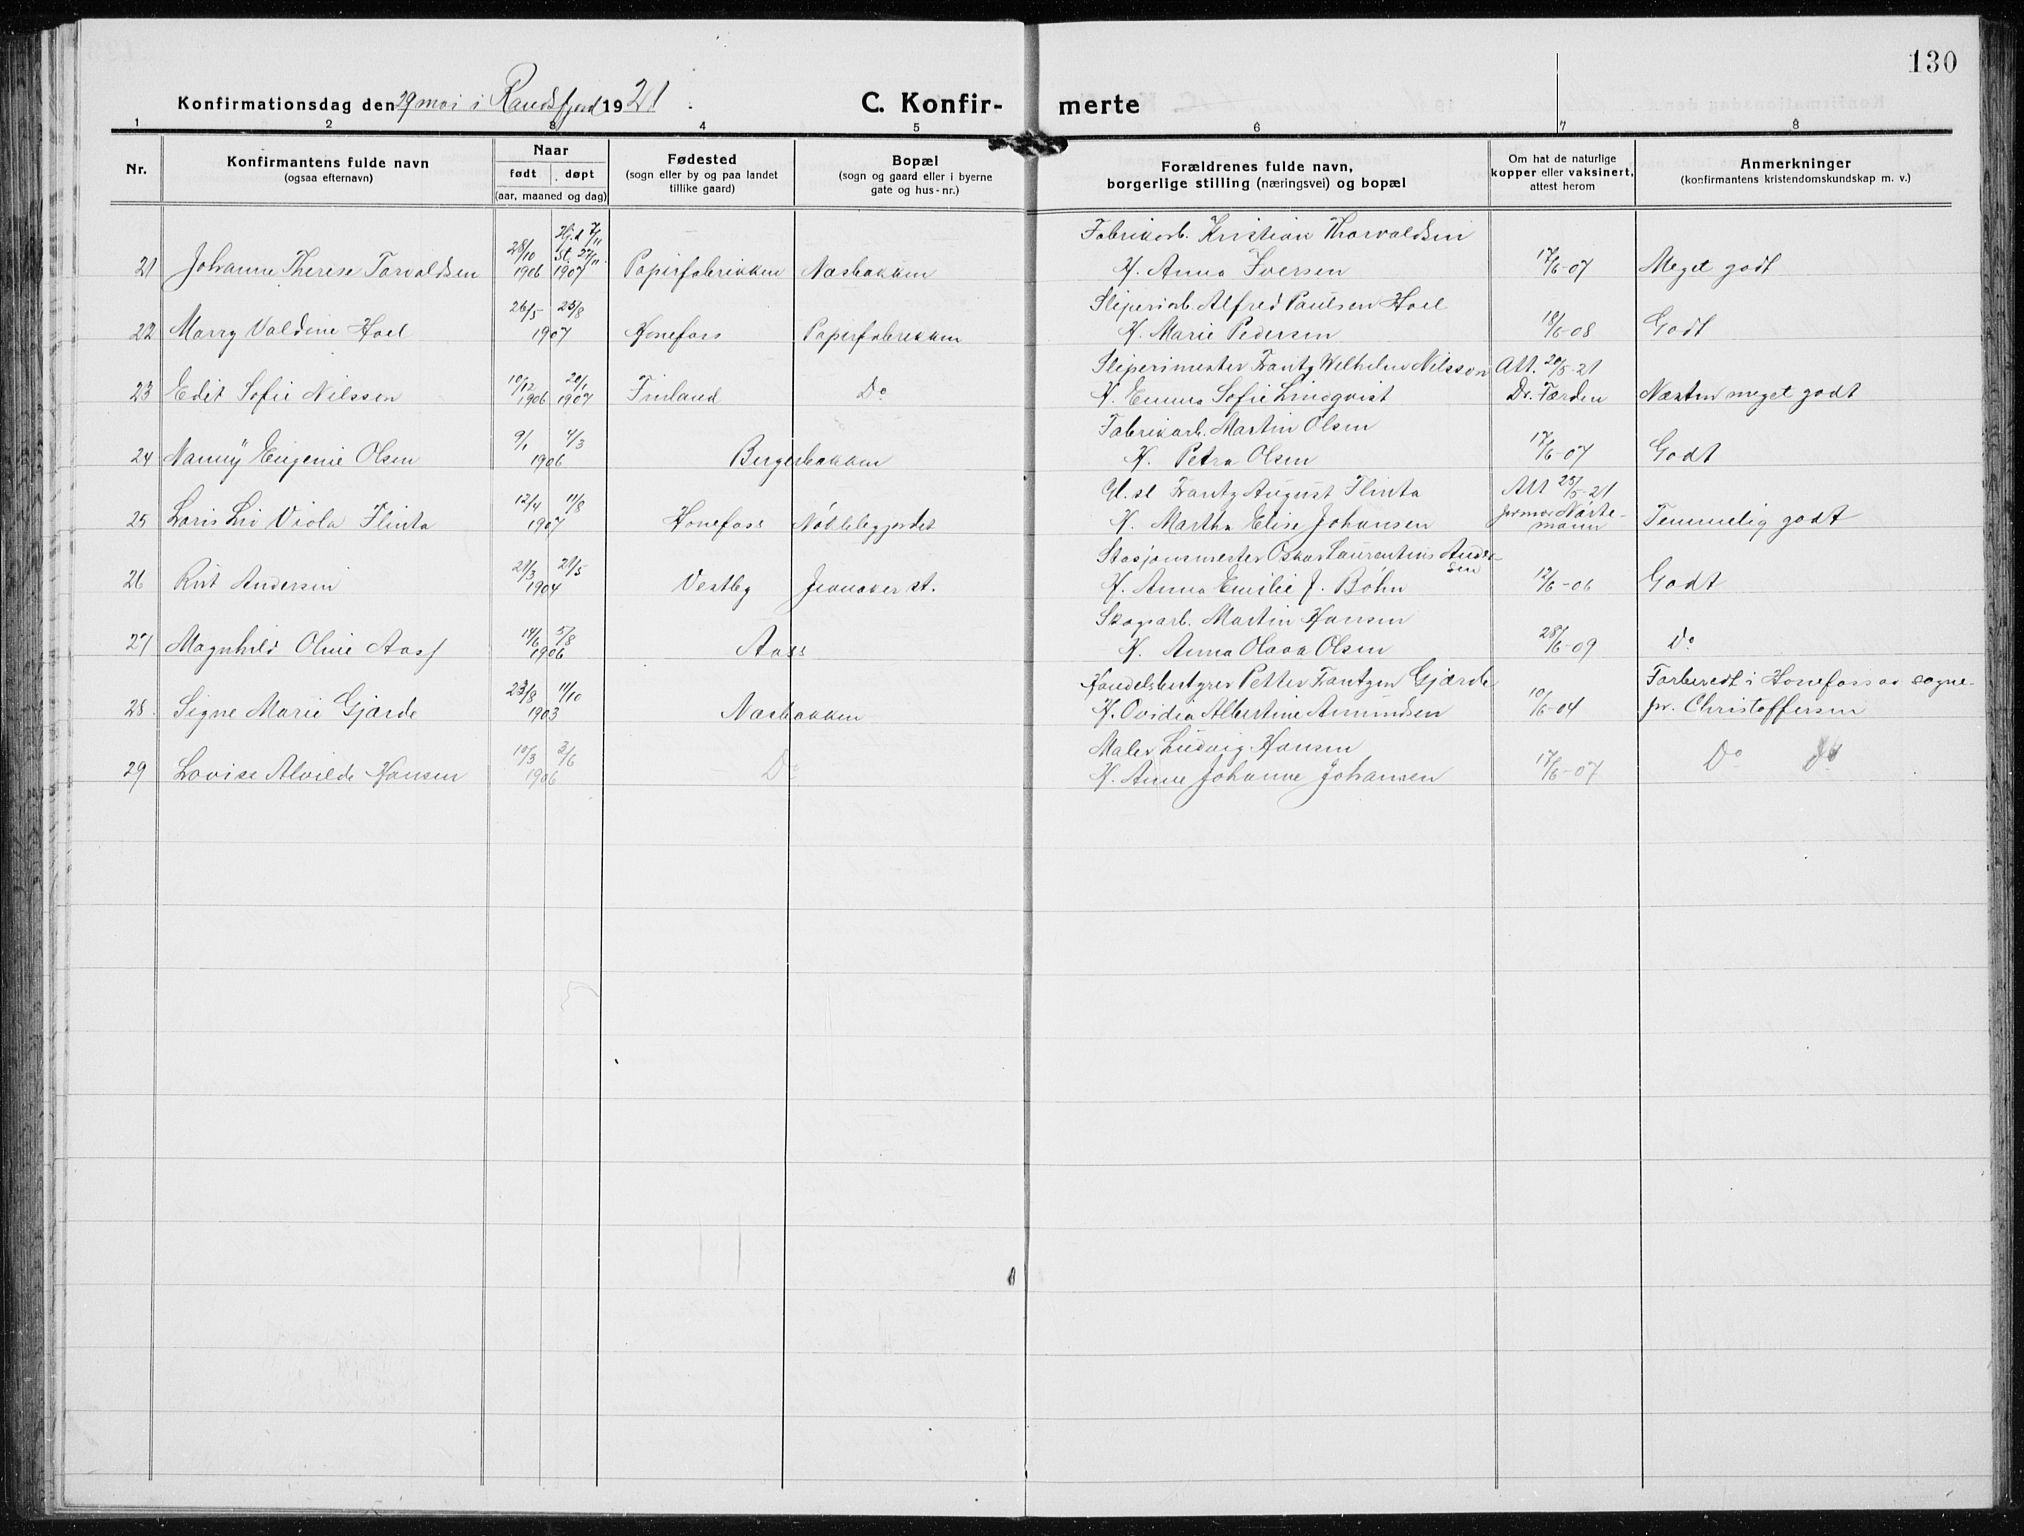 130
Konfirmationsdag den 29 mai i Randsfjord 1921. C. Konfir- merte
1 2 3 4 5 6 7 8
Nr. Konfirmantens fulde navn (ogsaa efternavn) Naar født døpt (aar, maaned og dag) Fødested (sogn eller by og paa landet tillike gaard) Bopæl (sogn og gaard eller i byerne gate og hus-nr.) Forældrenes fulde navn, borgerlige stilling (næringsvei) og bopæl Om hat de naturlige kopper eller vaksinert, attest herom Anmerkninger (konfirmantens kristendomskundskap m. v.)
Hjd 7/11 Fabrikarb. Kristian Thorvaldsen
28/10 St. 27/11
21 Johanne Therese Torvaldsen 1906 1907 Papirfabrikken Næsbakken H. Anna Iversen 17/6-07 Meget godt
26/5 25/8 Sliperiarb. Alfred Paulsen Hoel
22 Marry Valdine Hoel 1907 Hønefoss Papirfabrikken H. Marie Pedersen 18/6-08 Godt
10/12 20/1 Sliperimester Frantz Wilhelm Nilsson Att. 20/5-21
23 Edit Sofie Nilssen 1906 1907 Finland Do H. Emma Sofie Lindqvist Dr. Færden Næsten meget godt
9/1 4/3 Fabrikarb. Martin Olsen
24 Nanny Eugenie Olsen 1906 Bergerbakken H. Petra Olsen 17/6-07 Godt
12/4 11/8 Gl.sl. Frantz August Flinta Att 25/5-21
25 Loris Liv Viola Flinta 1907 Hønefoss Nøklebygjordet H. Martha Elise Johansen jormor Nørtemann Temmelig godt
21/3 21/5 Stasjonsmester Oskar Laurentius Andersen
26 Rut Andersen 1904 Vestby Jevnaker st. H. Anna Emilie J. Bøhn 12/6-06 Godt
14/6 5/8 Skogsarb. Martin Hansen
27 Magnhild Oline Aass 1906 Aass H. Anna Olava Olsen 28/6-09 Do
23/8 11/10 Handelsbestyrer Petter Frantzen Gjærde Forberedt i Hønefoss av sogne-
28. Signe Marie Gjærde 1903 Næsbakken H. Ovidia Albertine Amundsen 10/6-04 pr. Christoffersen
10/3 3/6 Maler Ludvig Hansen
29 Lovise Alvilde Hansen 1906 Do H. Anne Johanne Johansen 17/6-07 Do Do